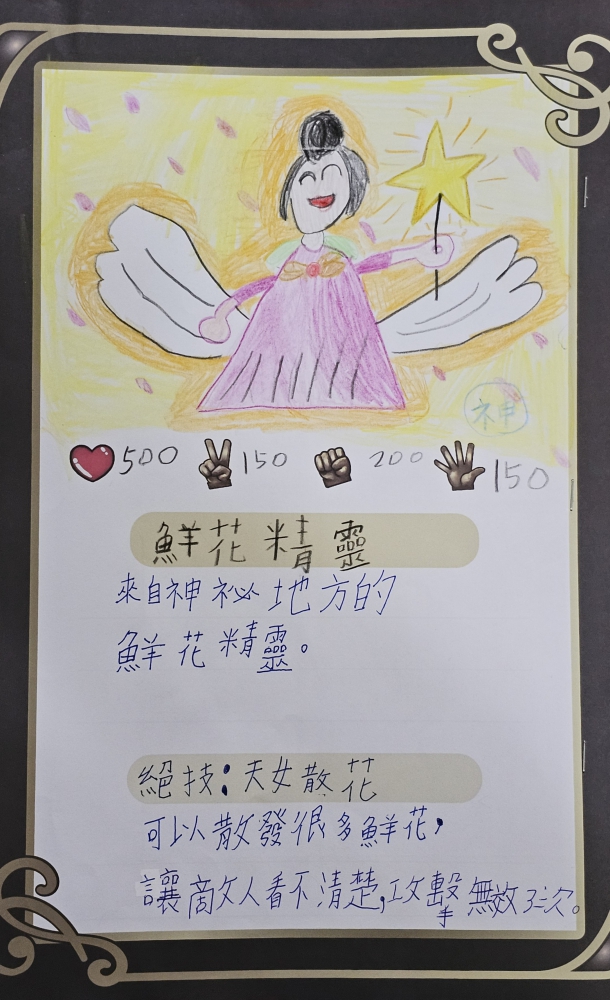 神
500 150 200 150
鮮花精靈
來自神祕地方的
鮮花精靈。
絕技：天女散花
可以散發很多鮮花，
讓敵人看不清楚，攻擊無效3次。